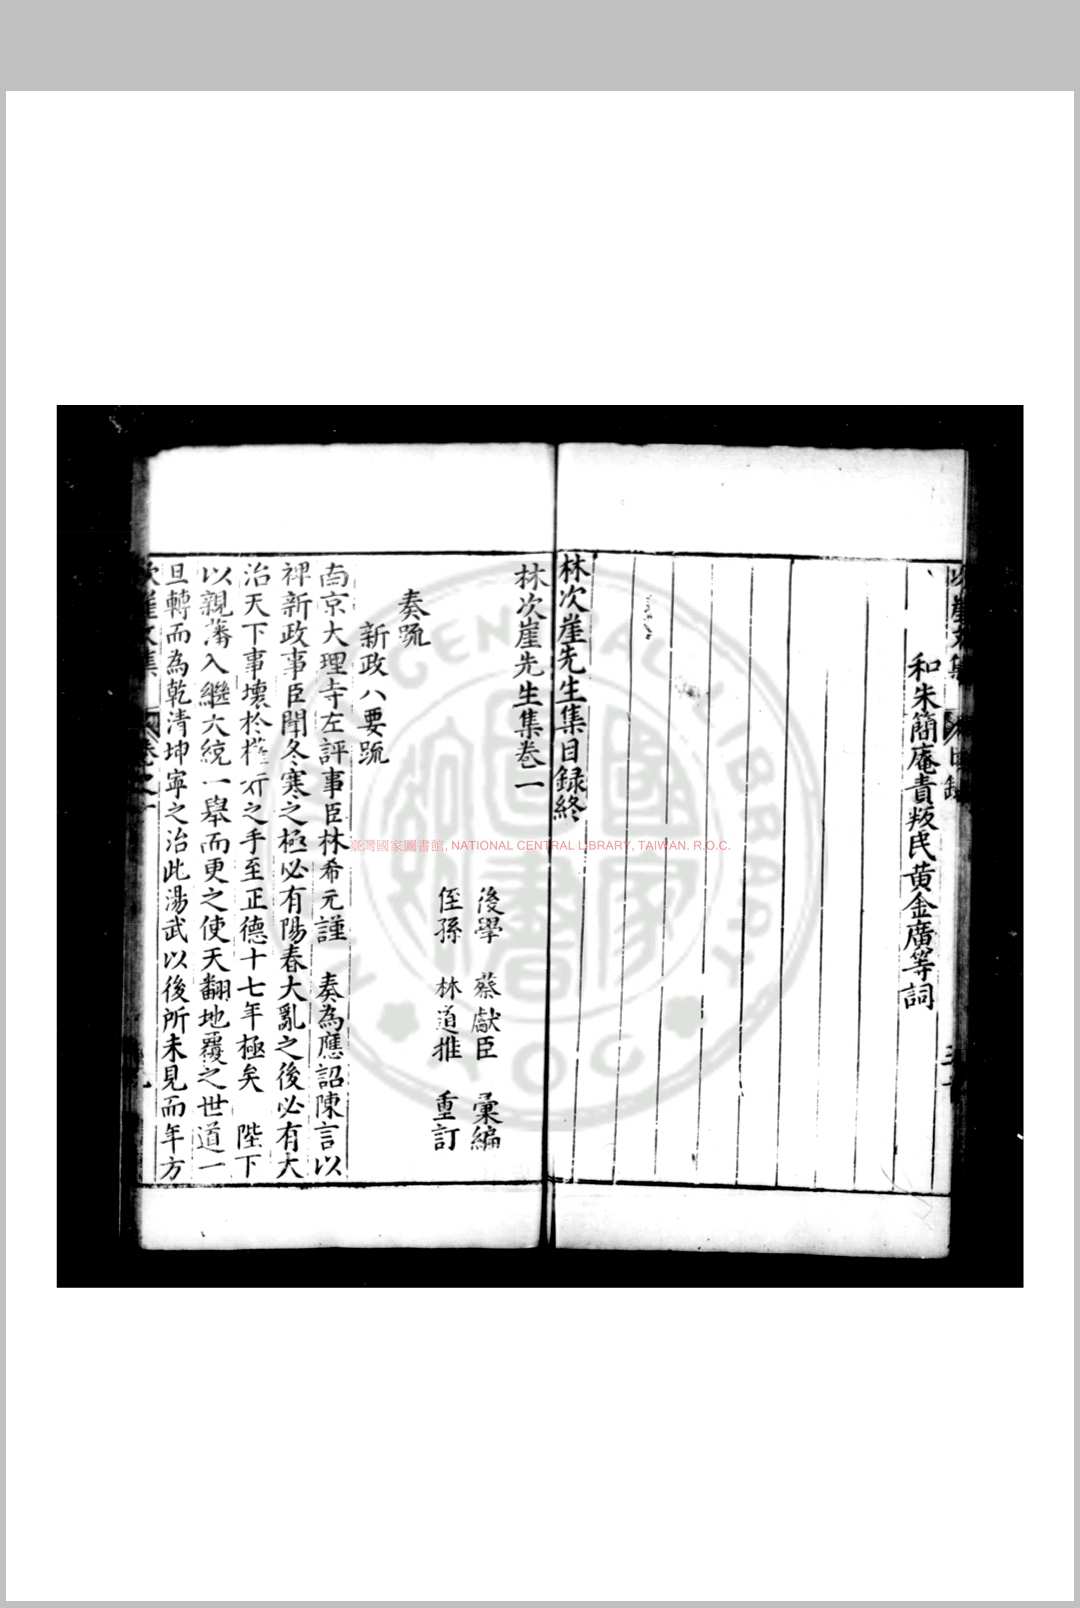 和朱簡庵責叛民黄金廣等詞
林次崖先生集目録終
林次崖先生集卷一
後學 蔡獻臣 彙編
侄孫 林道推 重訂
奏䟽
新政八要䟽
南京大理寺左評事臣林希元謹 奏為應詔陳言以
裨新政事臣聞冬寒之極必有陽春大亂之後必有大
治天下事壞於之手至正德十七年極矣 陛下
以親藩入繼大統一舉而更之使天翻地覆之世道一
旦轉而為乾清坤寧之治此湯武以後所未見而年方
臺灣國家圖書館, NATIONAL CENTRAL LIBRARY, TAIWAN. R.O.C.